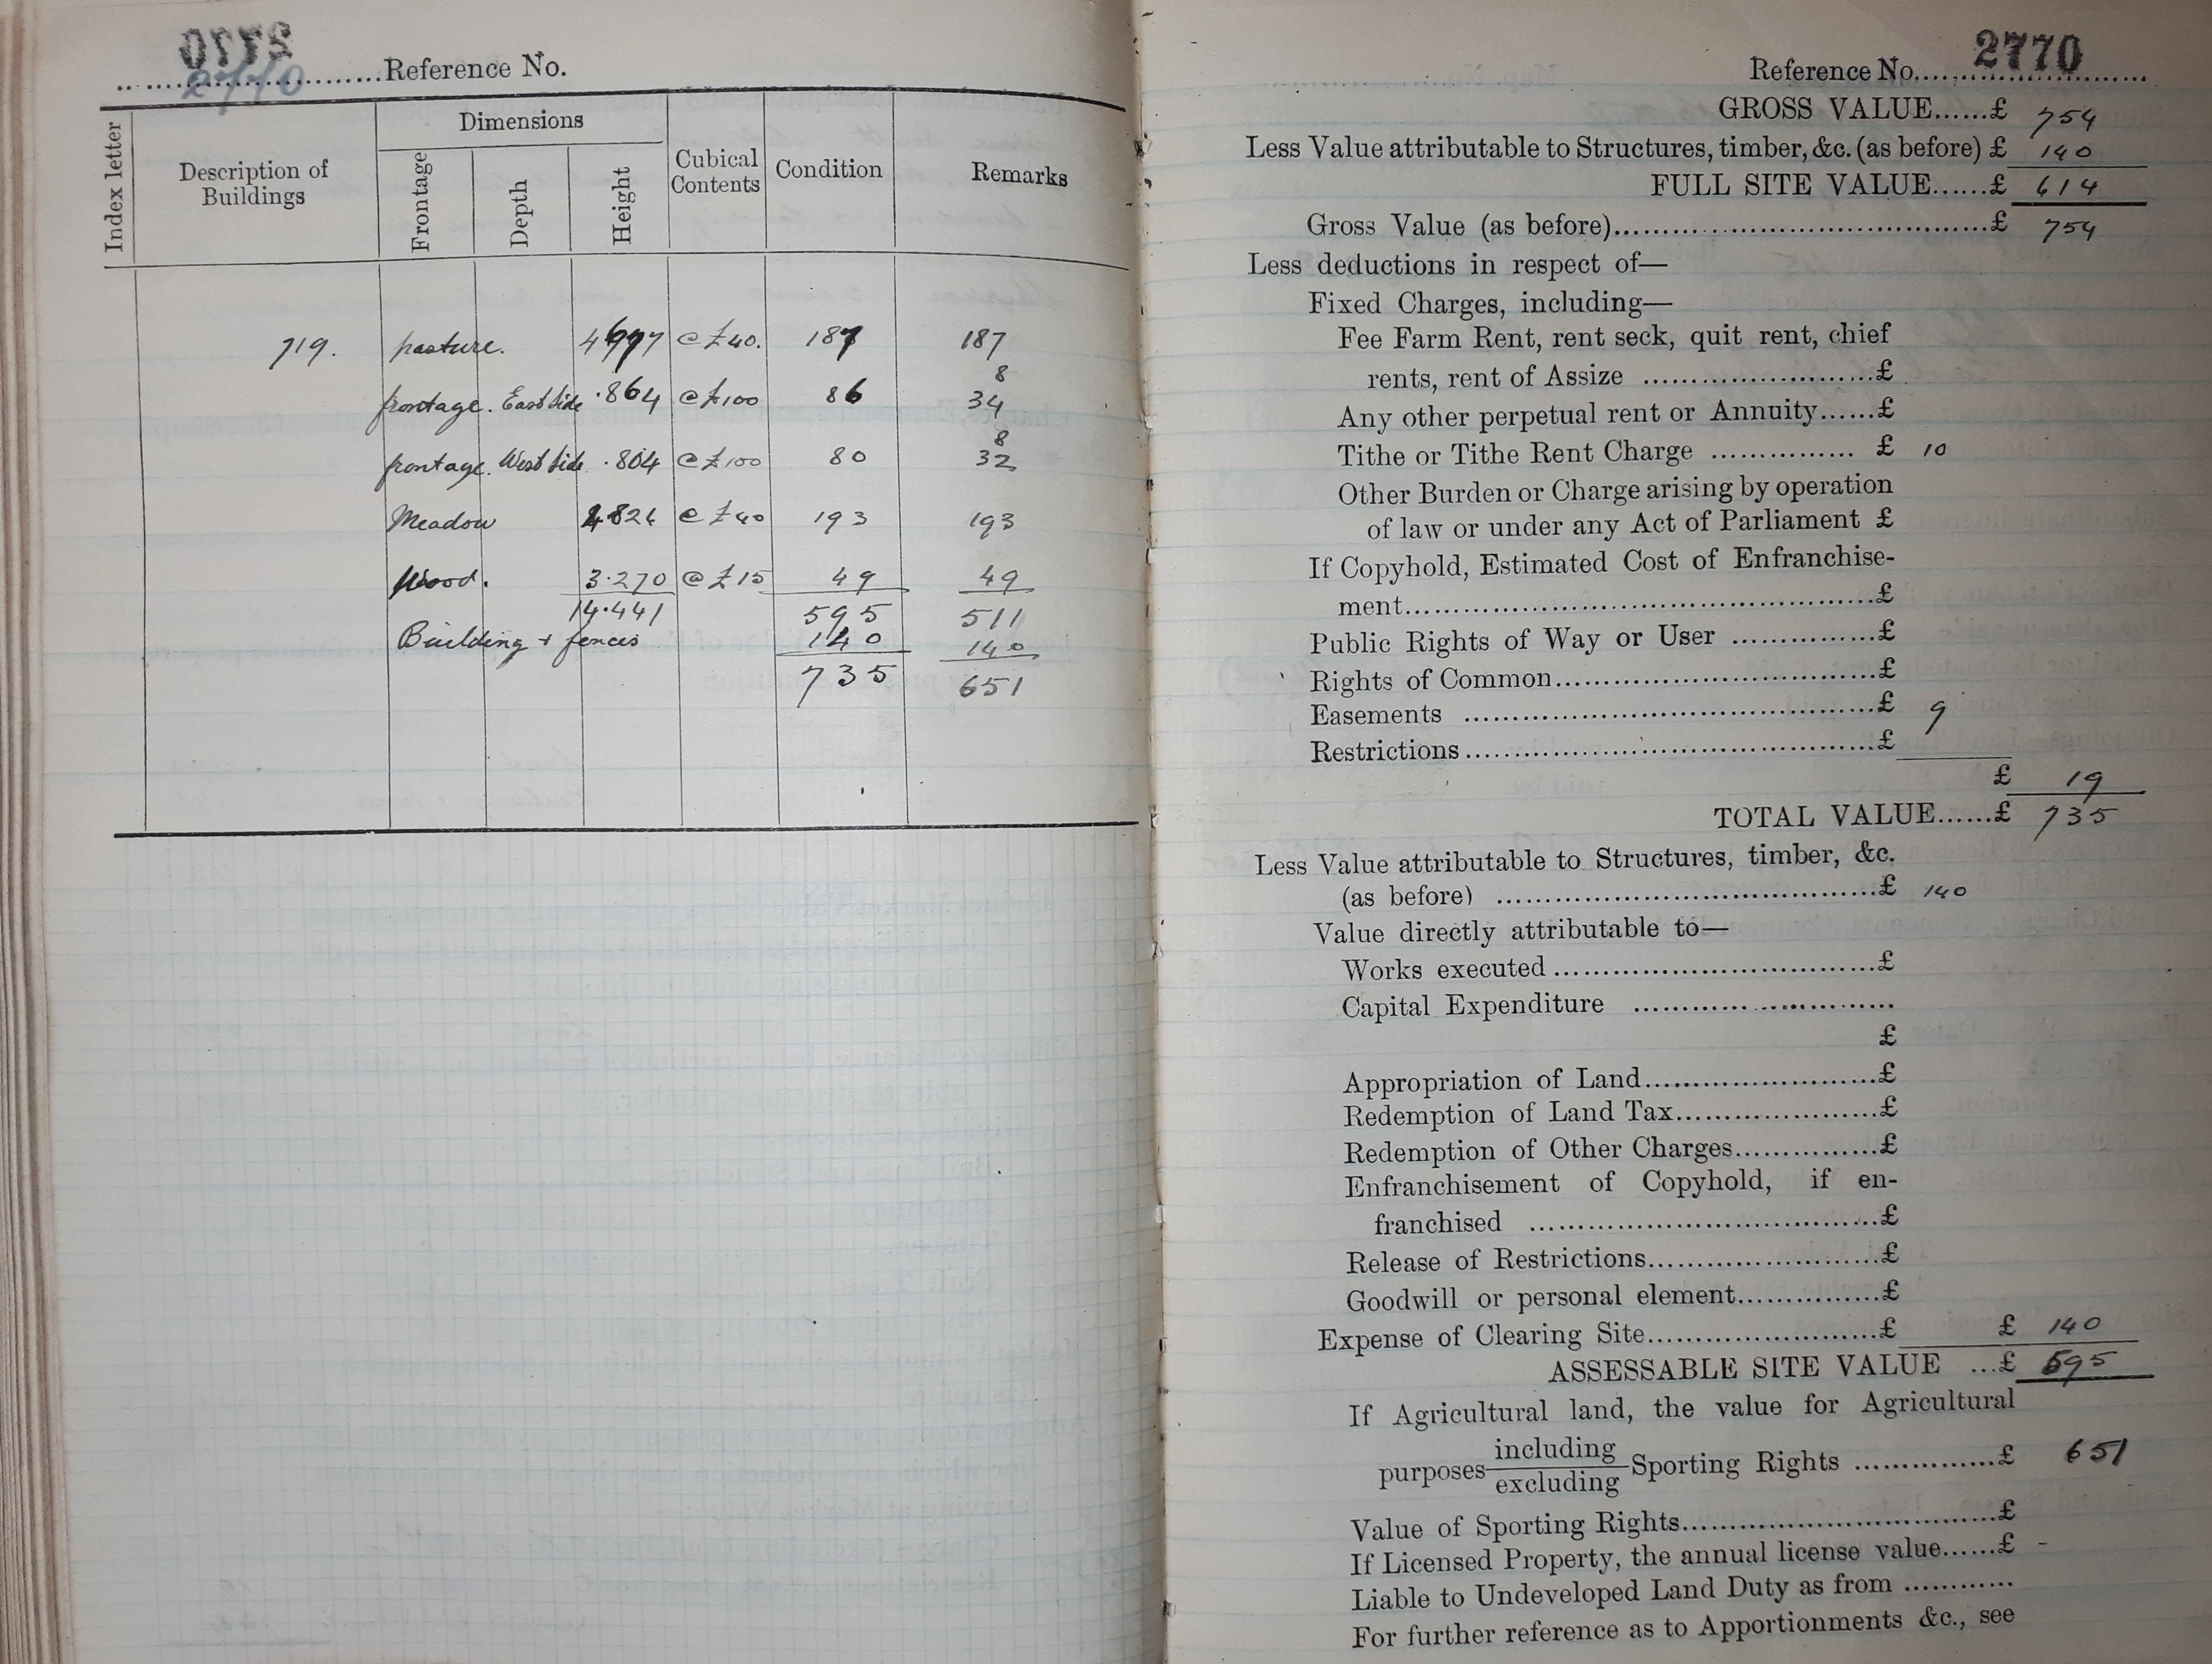 2770
2770 Reference No.
Index letter
Description of Buildings
Dimensions
Frontage
Depth
Height
Cubical Contents
Condition
Remarks
719. pasture. @ £40. 187 187
8
frontage. East Side .864 @ £100 86 34
8
frontage. West Side .804 @ £100 80 32
Meadow @ £40 193 193
Wood. 3.270 @ £15 49 49
14.441 595 511
Building + fences 140 140
735 651
Reference No. 2770
GROSS VALUE......£ 754
Less Value attributable to Structures, timber, &c. (as before) £ 140
FULL SITE VALUE......£ 614
Gross Value (as before)......£ 754
Less deductions in respect of—
Fixed Charges, including—
Fee Farm Rent, rent seck, quit rent, chief
rents, rent of Assize ......£
Any other perpetual rent or Annuity......£
Tithe or Tithe Rent Charge ......£ 10
Other Burden or Charge arising by operation
of law or under any Act of Parliament £
If Copyhold, Estimated Cost of Enfranchise-
ment......£
Public Rights of Way or User ......£
Rights of Common......£
Easements ......£ 9
Restrictions......£
£ 19
TOTAL VALUE......£ 735
Less Value attributable to Structures, timber, &c.
(as before) ......£ 140
Value directly attributable to—
Works executed......£
Capital Expenditure ......
£
Appropriation of Land......£
Redemption of Land Tax......£
Redemption of Other Charges......£
Enfranchisement of Copyhold, if en-
franchised ......£
Release of Restrictions......£
Goodwill or personal element......£
Expense of Clearing Site......£ £ 140
ASSESSABLE SITE VALUE ...£ 595
If Agricultural land, the value for Agricultural
purposes including excluding Sporting Rights ......£ 651
Value of Sporting Rights......£
If Licensed Property, the annual license value......£ -
Liable to Undeveloped Land Duty as from ......
For further reference as to Apportionments &c., see